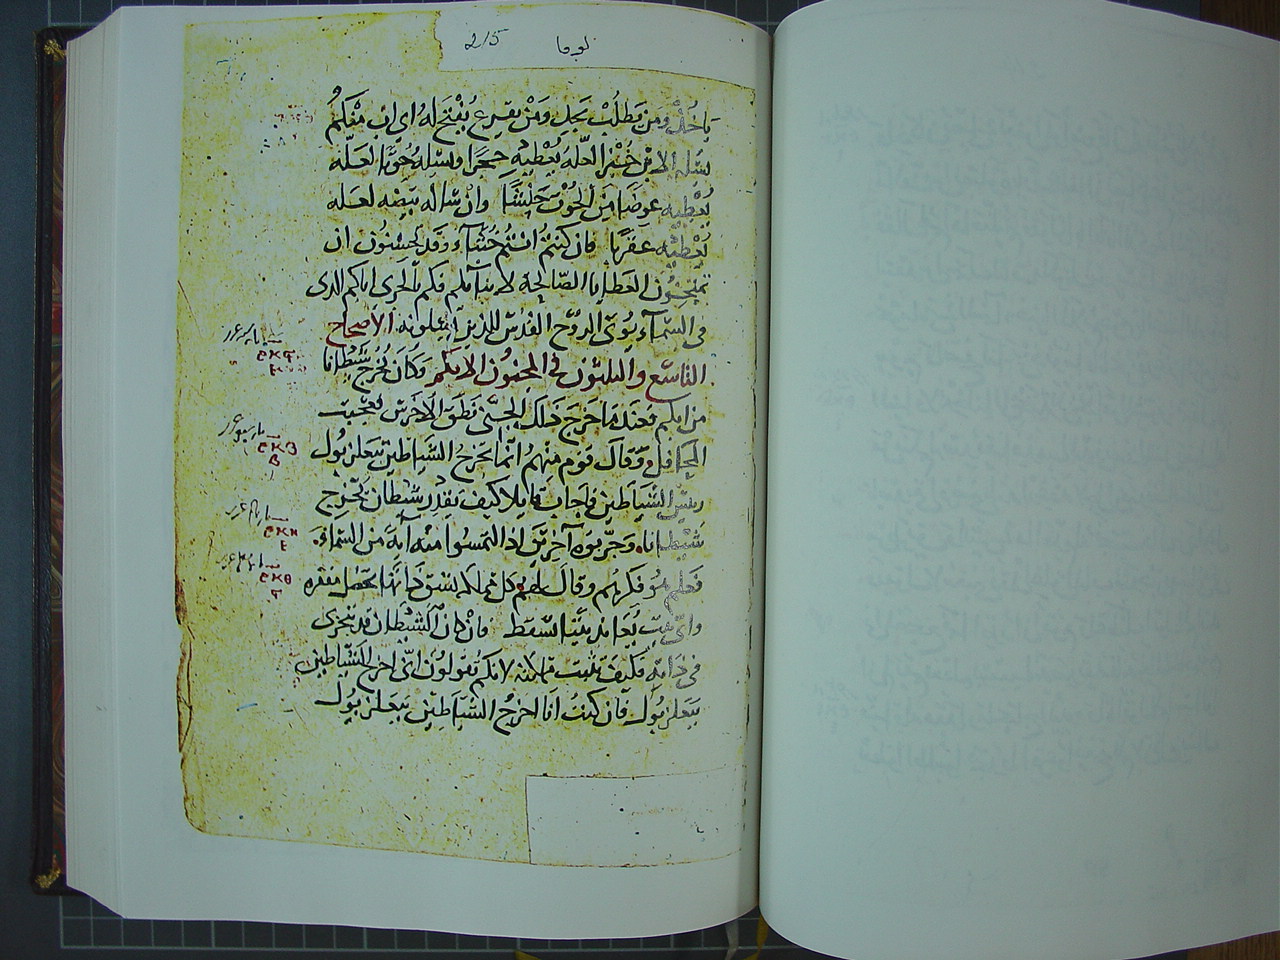 لوقا 215
ياخذ ومن يطلب يجد ومن يقرع يفتح له اي اب منكم
يسله الابن خبزا لعله يعطيه حجرا وسله حوتا لعله
يعطيه عوضا من الحوت حنشا وان ساله بيضه لعله
يعطيه عقربا فان كنتم انتم خبثآء وقد تحسنون ان
تمنحون العطايا الصالحة لابنآيكم فكم بالحرى اباكم الدى
فى السمآء يوتى الروح القدس للذين يسلونه الأصحاح
التاسع والثلثون في المجنون الابكم وكان يخرج شيطانا
من ابكم فعند ما خرج ذلك الجنى نطق الاخرس فتعجبت
المحافل وقال قوم منهم انما يخرج الشياطين ببعلزبول
رييس الشياطين فاجاب قايلا كيف يقدر شيطان يخرج
شيطانا وجربوه آخرين اذ التمسوا منه آية من السماء
فعلم هو فكرهم وقال لهم كل مملكه تنشق ذاتها تخرب
وان بيت يعاند بيتا سقط فان كان الشيطان قد تجزى
فى ذاته فكيف تثبت مملكته لانكم تقولون انى اخرج الشياطين
ببعلزبول فان كنت انا اخرج الشياطين ببعلزبول